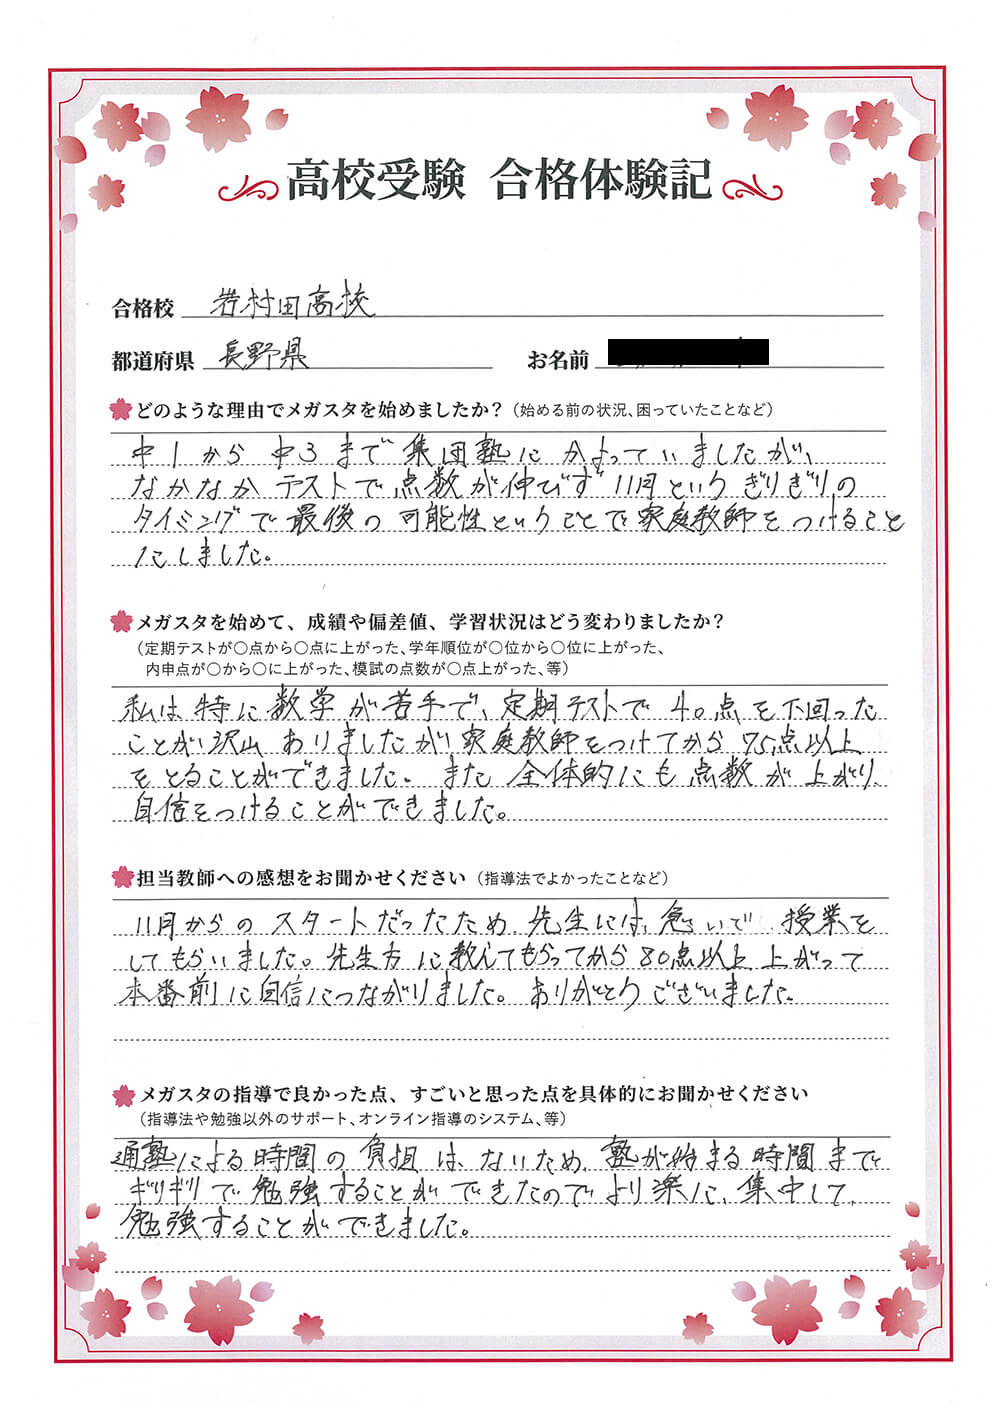 高校受験 合格体験記
合格校 岩村田高校
都道府県 長野県 お名前
どのような理由でメガスタを始めましたか？（始める前の状況、困っていたことなど）
中1から中3まで集団塾にかよっていましたが、
なかなかテストで点数が伸びず11月というぎりぎりの
タイミングで最後の可能性ということで家庭教師をつけること
にしました。
メガスタを始めて、成績や偏差値、学習状況はどう変わりましたか？
（定期テストが〇点から〇点に上がった、学年順位が〇位から〇位に上がった、
内申点が〇から〇に上がった、模試の点数が〇点上がった、等）
私は特に数学が苦手で、定期テストで40点を下回った
ことが沢山ありましたが家庭教師をつけてから75点以上
をとることができました。また全体的にも点数が上がり、
自信をつけることができました。
担当教師への感想をお聞かせください（指導法でよかったことなど）
11月からのスタートだったため、先生には、急いで授業を
してもらいました。先生方に教えてもらってから80点以上上がって
本番前に自信につながりました。ありがとうございました。
メガスタの指導で良かった点、すごいと思った点を具体的にお聞かせください
（指導法や勉強以外のサポート、オンライン指導のシステム、等）
通塾による時間の負担は、ないため、塾が始まる時間まで
ギリギリで勉強することができたのでより楽に、集中して、
勉強することができました。